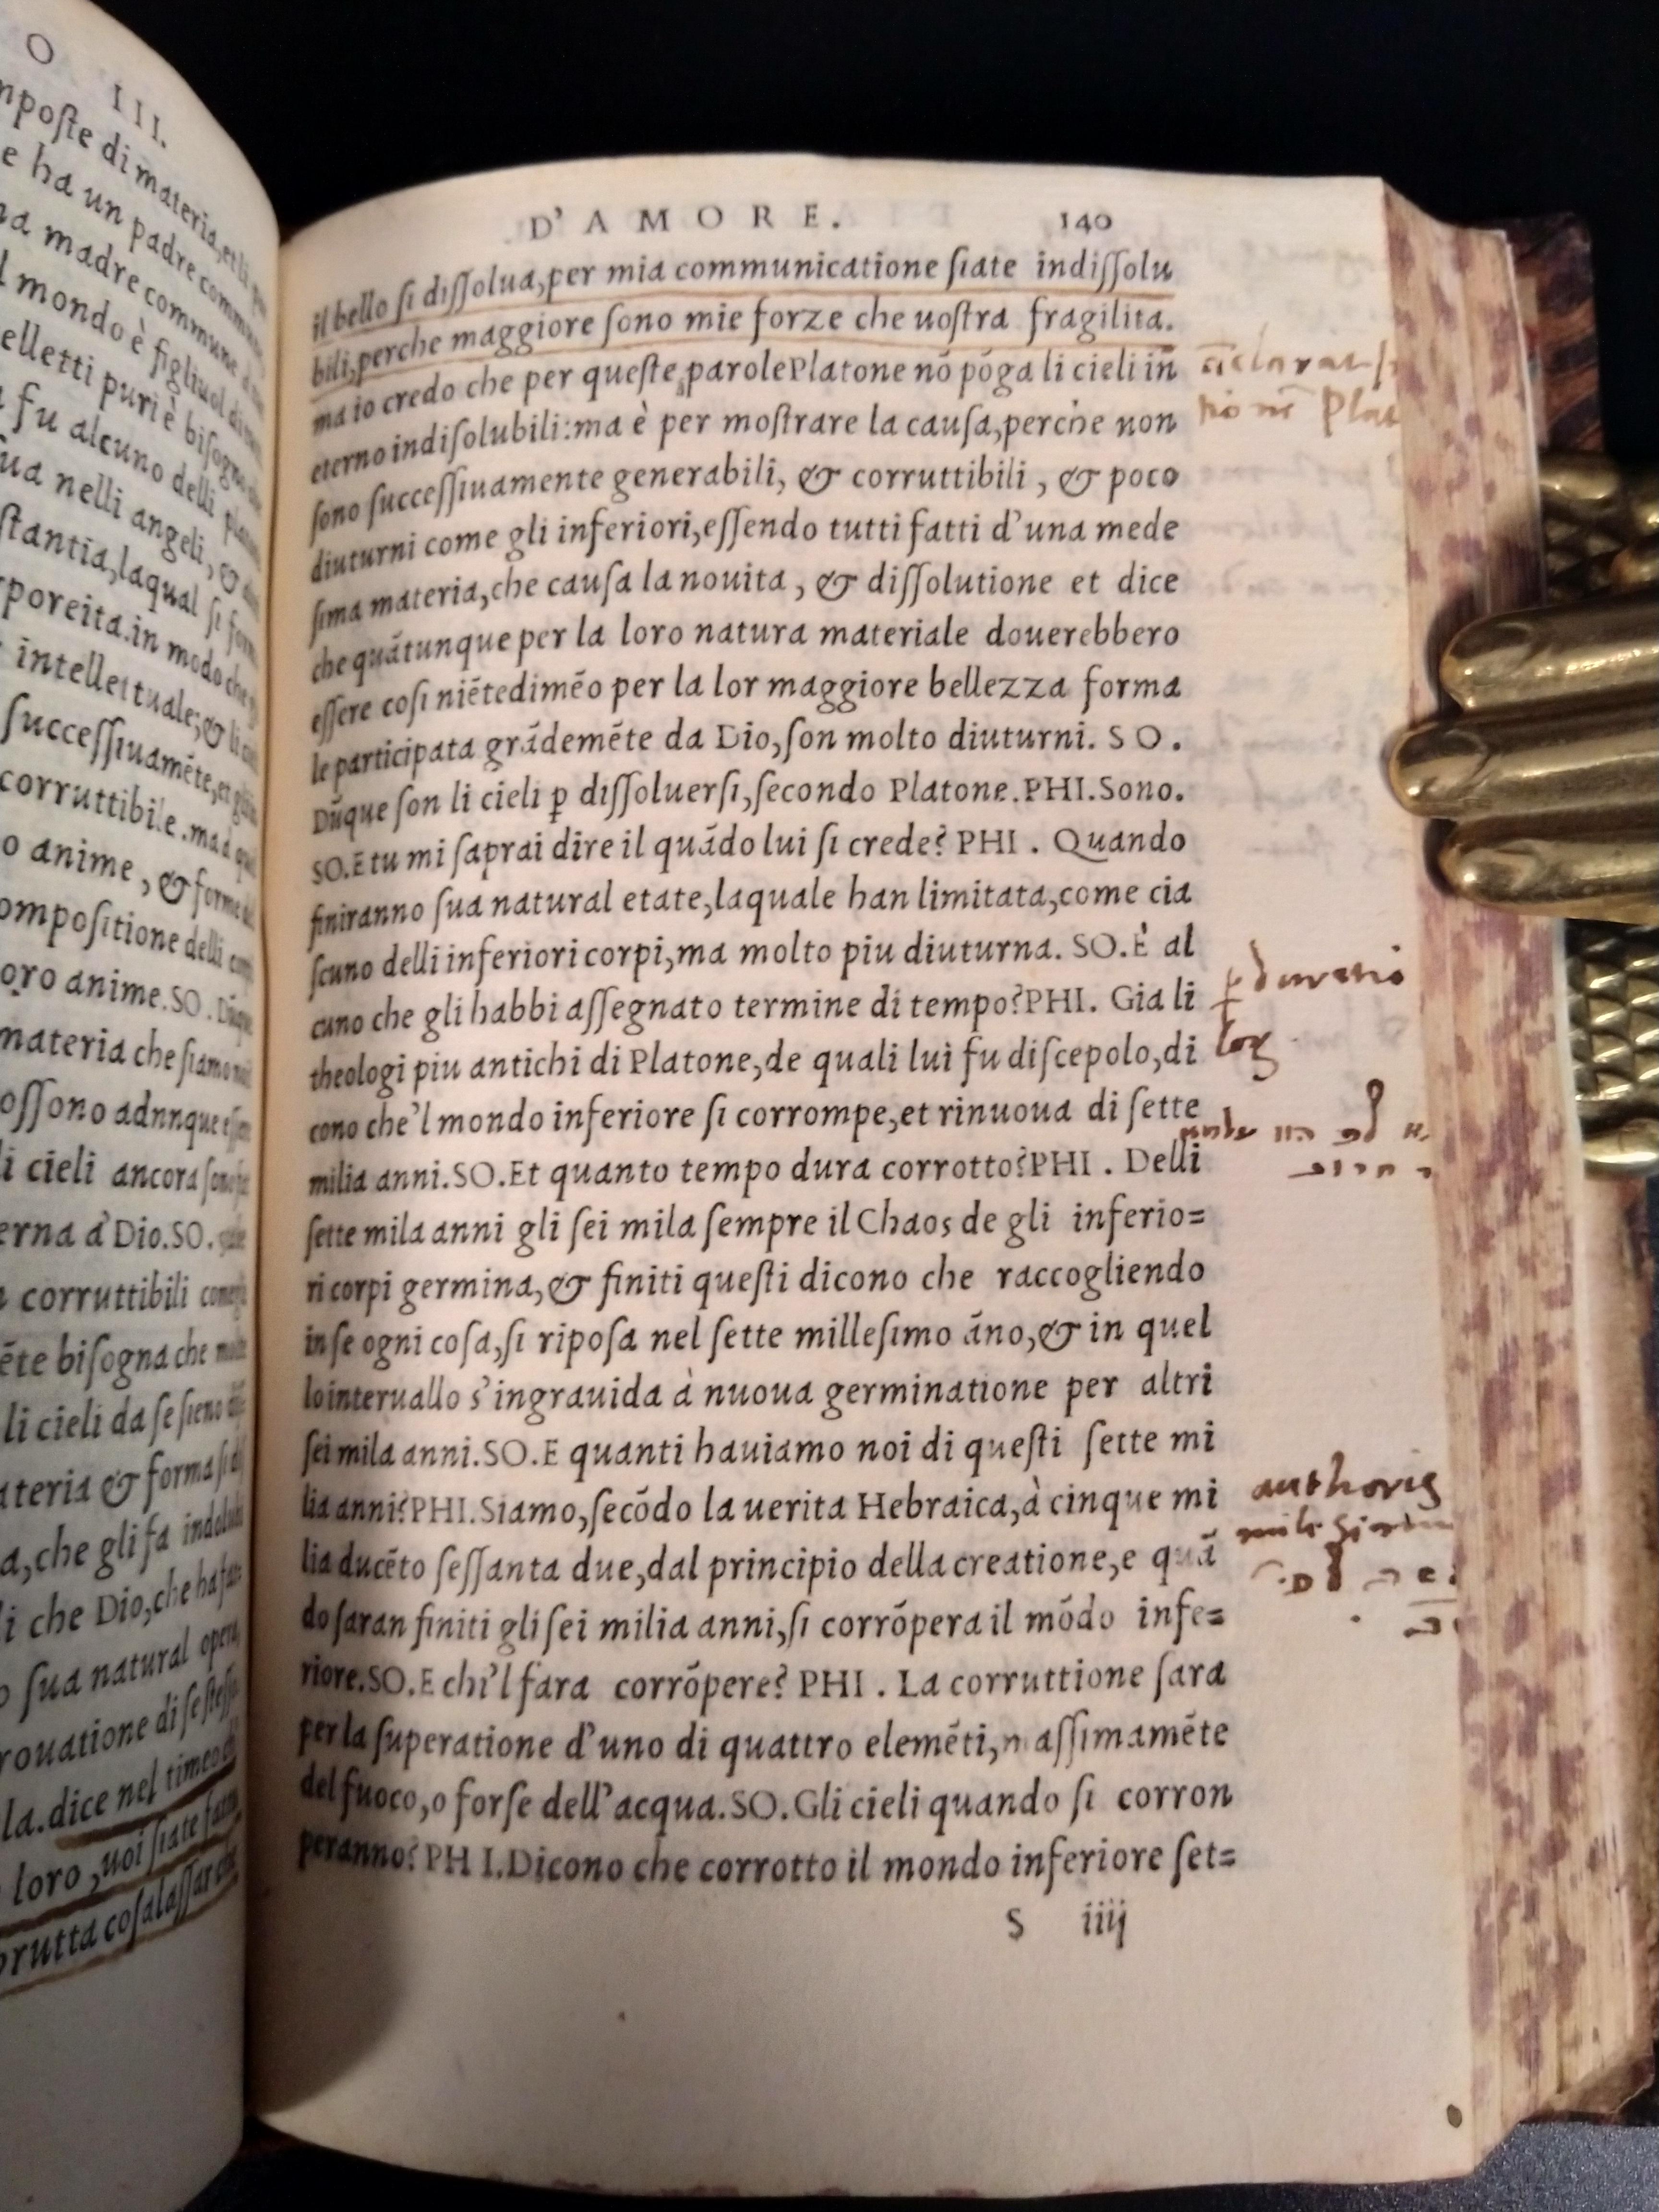 O III.
mposte di materia, et li
e ha un padre commu
a madre commune
l mondo è figliuol di
elletti puri è bisogno
fu alcuno delli
ua nelli angeli, &
stantia, laqual si
poreita. in modo che
intellettuale; & li
successiuamẽte, et
corruttibile. ma
o anime, & forme
ompositione delli
oro anime. SO.
materia che siamo
ossono adnnque
i cieli ancora
erna à Dio. SO.
corruttibili
ẽte bisogna che
li cieli da se sieno
ateria & forma
a, che gli fa
i che Dio, che ha
o sua natural
rouatione di se stessa
la. dice nel timeo
loro, uoi siate
brutta cosa
D' A M O R E. 140
il bello si dissolua, per mia communicatione siate indissolu
bili, perche maggiore sono mie forze che uostra fragilita.
ma io credo che per queste parole Platone nõ põga li cieli in
eterno indisolubili: ma è per mostrare la causa, perche non
sono successiuamente generabili, & corruttibili, & poco
diuturni come gli inferiori, essendo tutti fatti d'una mede
sima materia, che causa la nouita, & dissolutione et dice
che quãtunque per la loro natura materiale douerebbero
essere cosi niẽtedimẽo per la lor maggiore bellezza forma
le participata grãdemẽte da Dio, son molto diuturni. S O.
Dũque son li cieli ꝑ dissoluersi, secondo Platone. PHI. Sono.
SO. E tu mi saprai dire il quãdo lui si crede? PHI. Quando
finiranno sua natural etate, laquale han limitata, come cia
scuno delli inferiori corpi, ma molto piu diuturna. SO. È al
cuno che gli habbi assegnato termine di tempo? PHI. Gia li
theologi piu antichi di Platone, de quali lui fu discepolo, di
cono che'l mondo inferiore si corrompe, et rinuoua di sette
milia anni. SO. Et quanto tempo dura corrotto? PHI. Delli
sette mila anni gli sei mila sempre il Chaos de gli inferio=
ri corpi germina, & finiti questi dicono che raccogliendo
in se ogni cosa, si riposa nel sette millesimo ãno, & in quel
lo interuallo s'ingrauida à nuoua germinatione per altri
sei mila anni. SO. E quanti hauiamo noi di questi sette mi
lia anni? PHI. Siamo, secõdo la uerita Hebraica, à cinque mi
lia ducẽto sessanta due, dal principio della creatione, e quã
do saran finiti gli sei milia anni, si corrõpera il mõdo infe=
riore. SO. E chi'l fara corrõpere? PHI. La corruttione sara
per la superatione d'uno di quattro elemẽti, massimamẽte
del fuoco, o forse dell'acqua. SO. Gli cieli quando si corron
peranno? PH I. Dicono che corrotto il mondo inferiore set=
S iiij
Plat
duratio
authoris